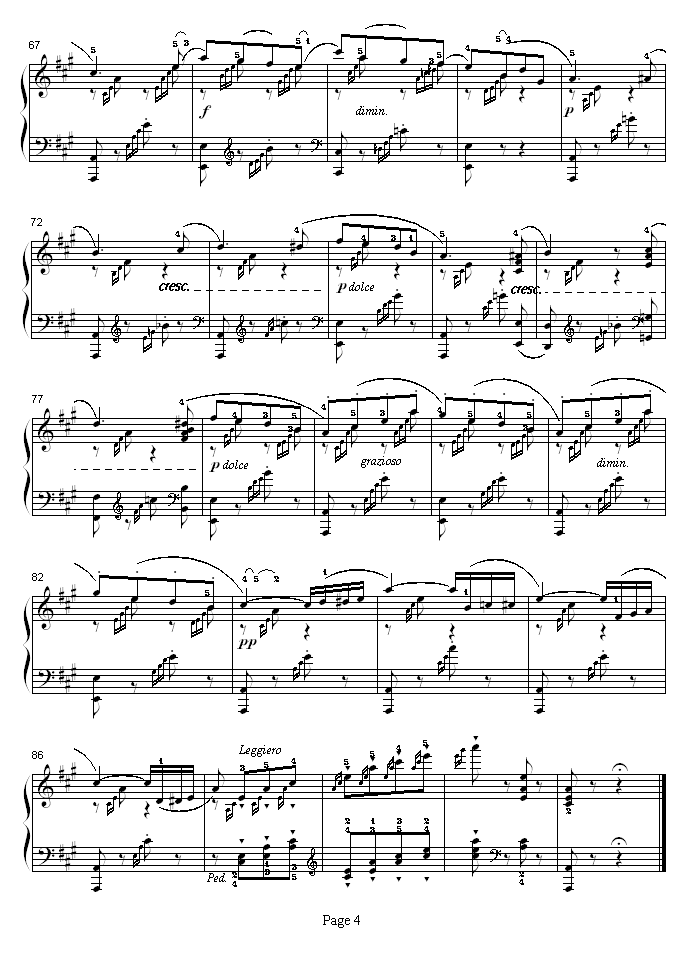 67
5 5 3 5 1 3 5 4 5 5 4
f dimin. p
72
4 4 4 3 1 5 4 4
cresc. p dolce cresc.
77
4 4 3 5 3 4 5 3 4 4 5 3 2 4 5 3 4
p dolce grazioso dimin.
82
5 4 5 2 1 1 1
pp
86
1 Leggiero 3 5 4 5 5 4 5
Ped.
2
Page 4